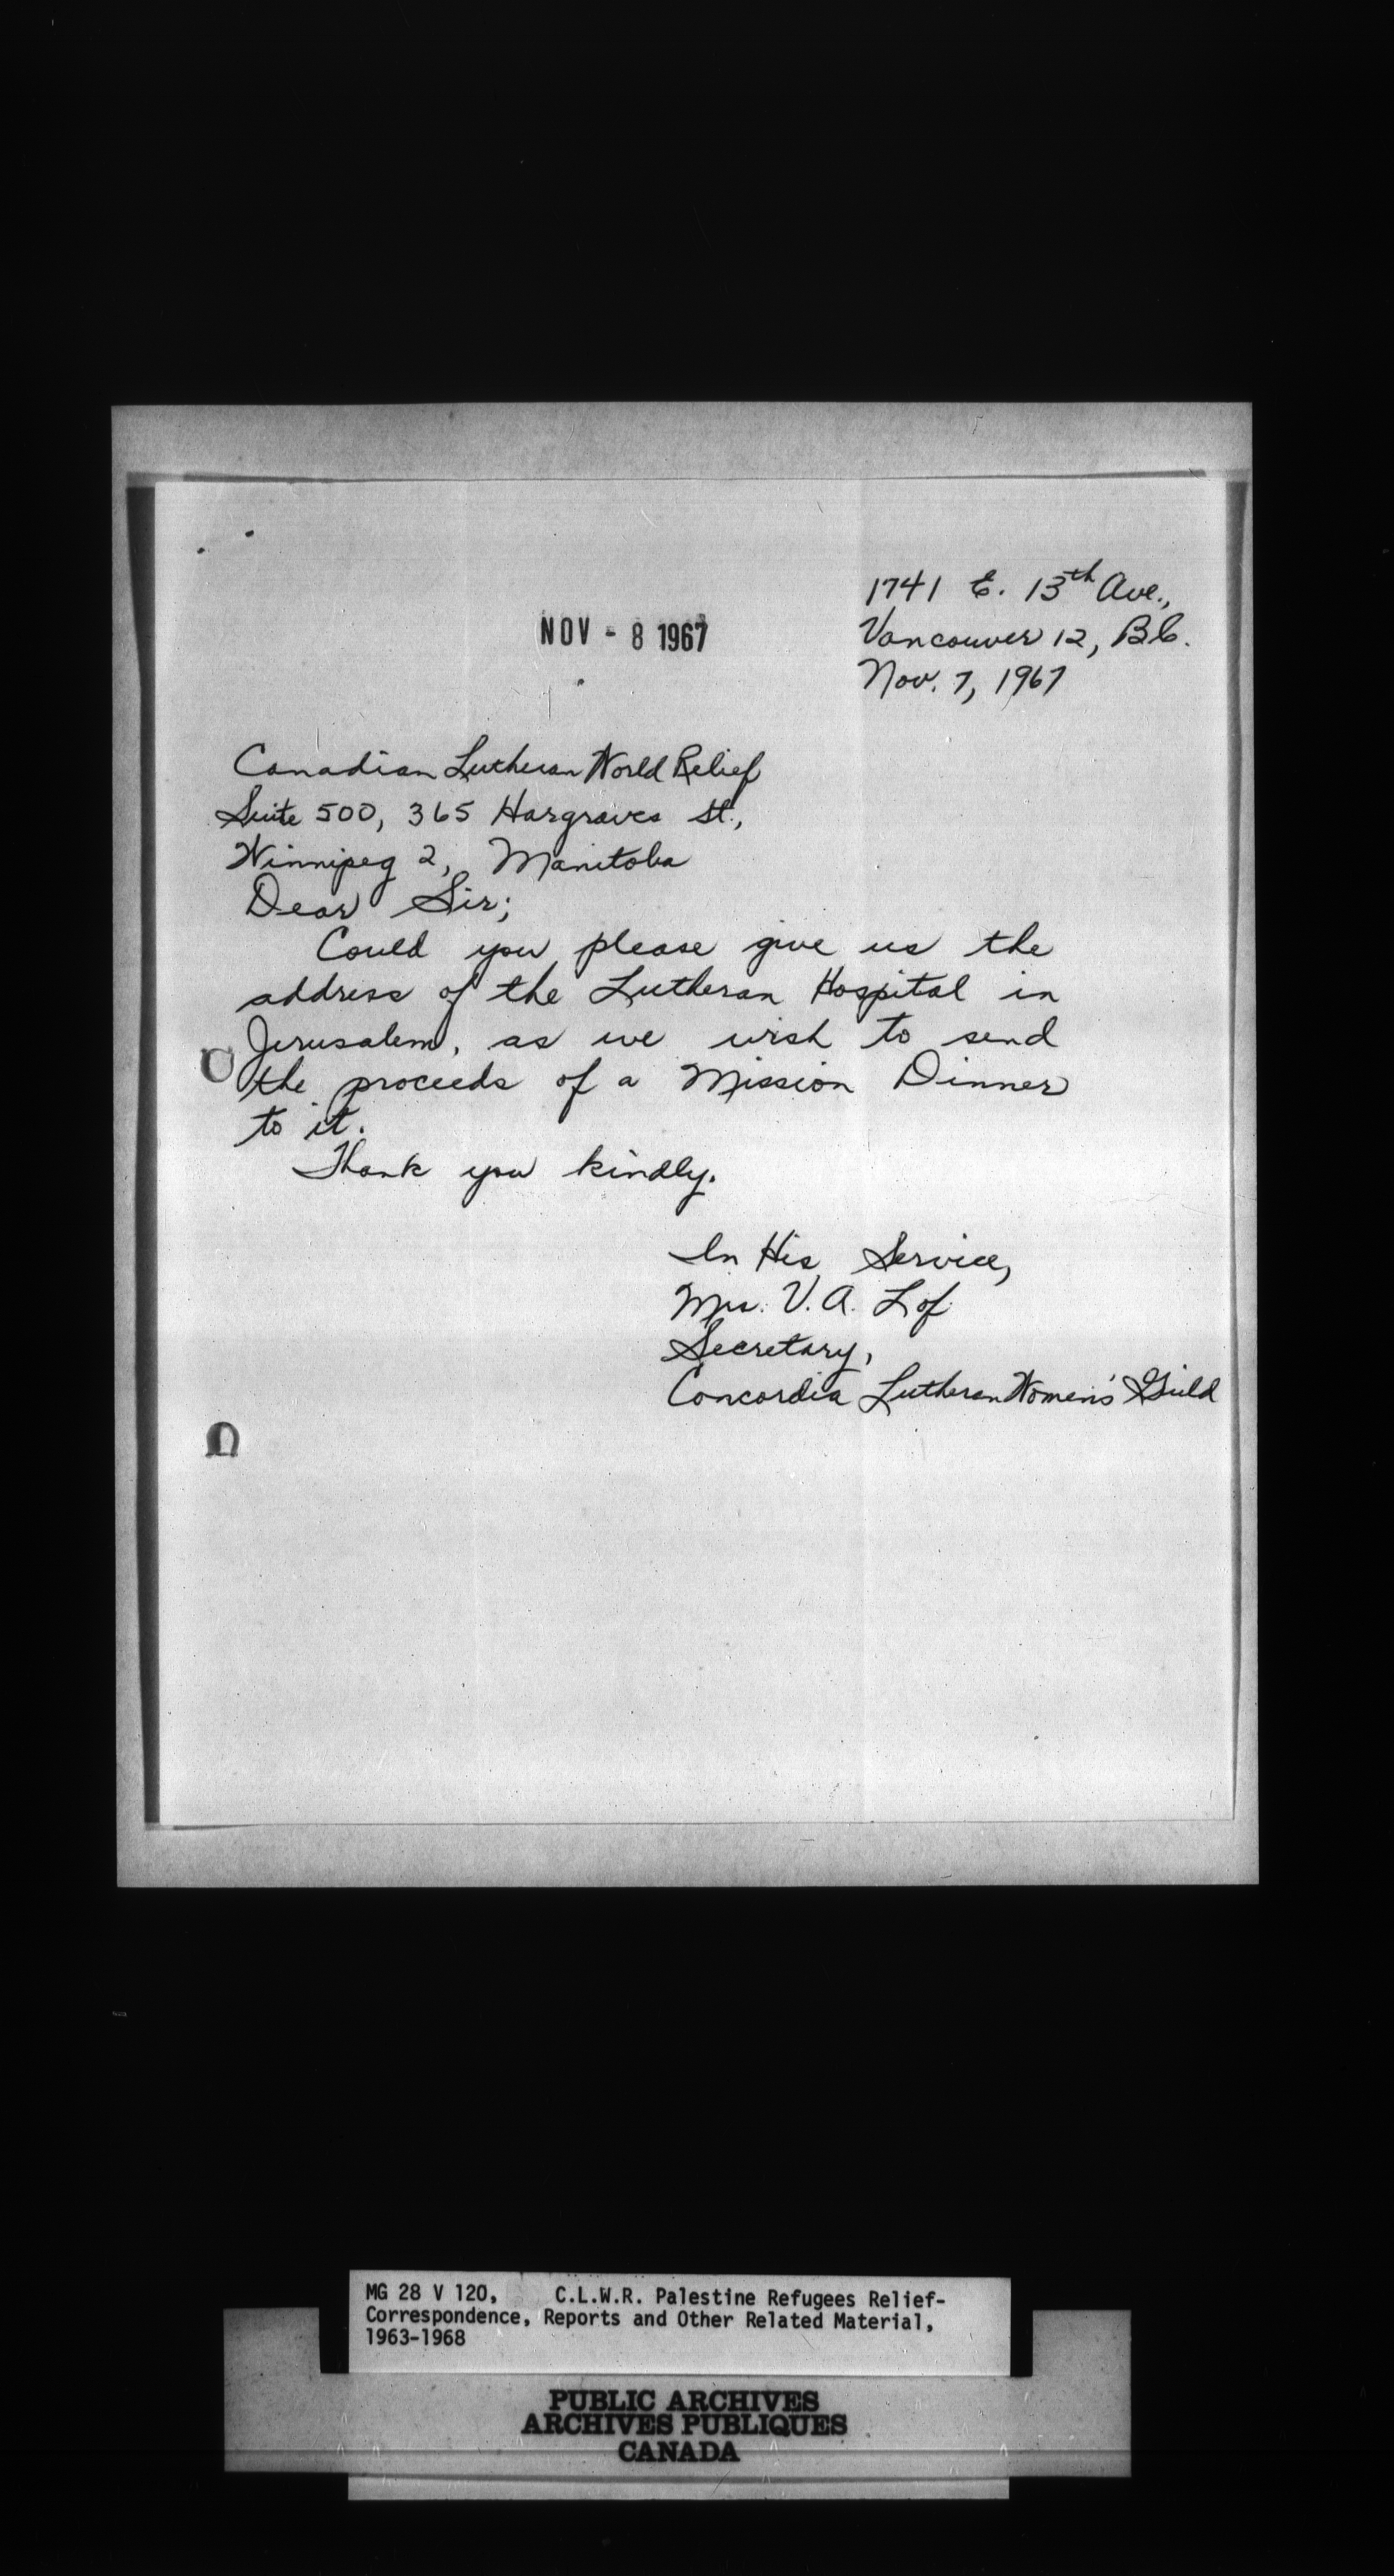 1741 E. 13th Ave.,
NOV - 8 1967
Vancouver 12, B.C.
Nov. 7, 1967
Canadian Lutheran World Relief
Suite 500, 365 Hargraves St.,
Winnipeg 2, Manitoba
Dear Sir;
Could you please give us the
address of the Lutheran Hospital in
Jerusalem, as we wish to send
the proceeds of a Mission Dinner
to it.
Thank you kindly.
In His Service,
Mrs. V. A. Lof
Secretary,
Concordia Lutheran Women's Guild
MG 28 V 120, C.L.W.R. Palestine Refugees Relief-
Correspondence, Reports and Other Related Material,
1963-1968
PUBLIC ARCHIVES
ARCHIVES PUBLIQUES
CANADA